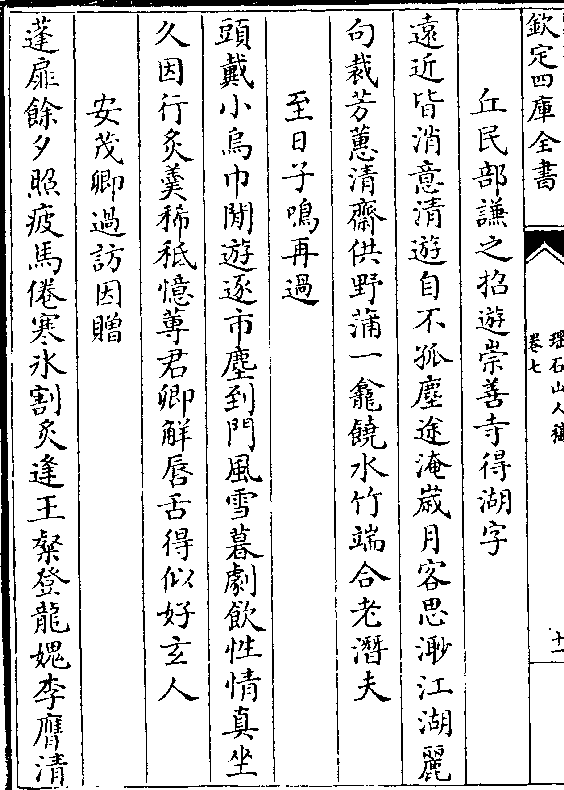 欽定四庫全書
瑶石山人稿
卷七
十一
丘民部謙之招遊崇善寺得湖字
遠近皆消意清遊自不孤塵途淹歲月客思渺江湖麗
句裁芳蕙清齋供野蒲一龕饒水竹端合老潛夫
至日子鳴再過
頭戴小烏巾閒遊逐市塵到門風雪暮劇飲性情真坐
久因行炙羹稀秪憶蓴君卿鮮唇舌得似好玄人
安茂卿過訪因贈
蓬扉餘夕照疲馬倦寒氷割炙逢王粲登龍媿李膺清